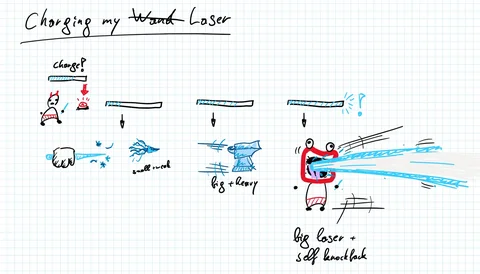 Charging my Wand Laser
charge?
small + weak
big + heavy
?
big laser +
self knockback